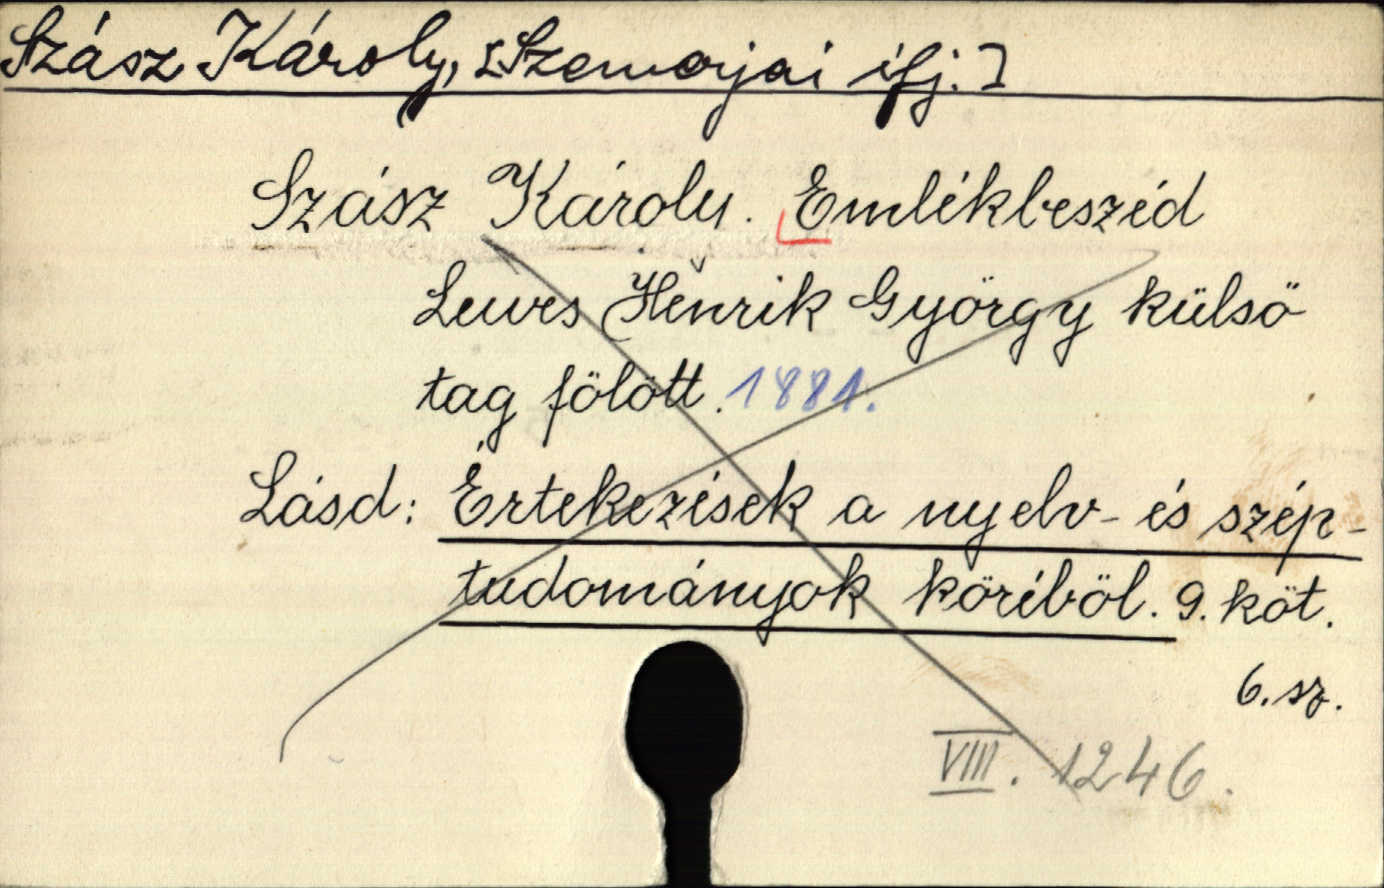 Szász Károly, [Szemerjai ifj.]
Szász Károly. Emlékbeszéd
Lewes Henrik György külső
tag fölött. 1881.
Lásd: Értekezések a nyelv- és szép-
tudományok köréből. 9. köt.
6. sz.
VIII. 1246.